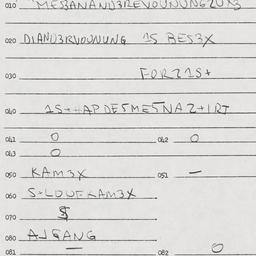 010 MESANANU3REVOUNUNG2UX3
020 DIANU3RVOUNUNG 1S BES3X
030 FORZ1S+
040 1S++APDESMESNAZ+IRT
041 O 042 O
043 O
050 KAM3X 051 —
060 S+LDUF KAM3X
070 $
080 AJGANG
081 — 082 O